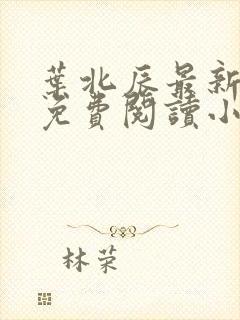 葉北辰最新
免費閱讀小
林荣